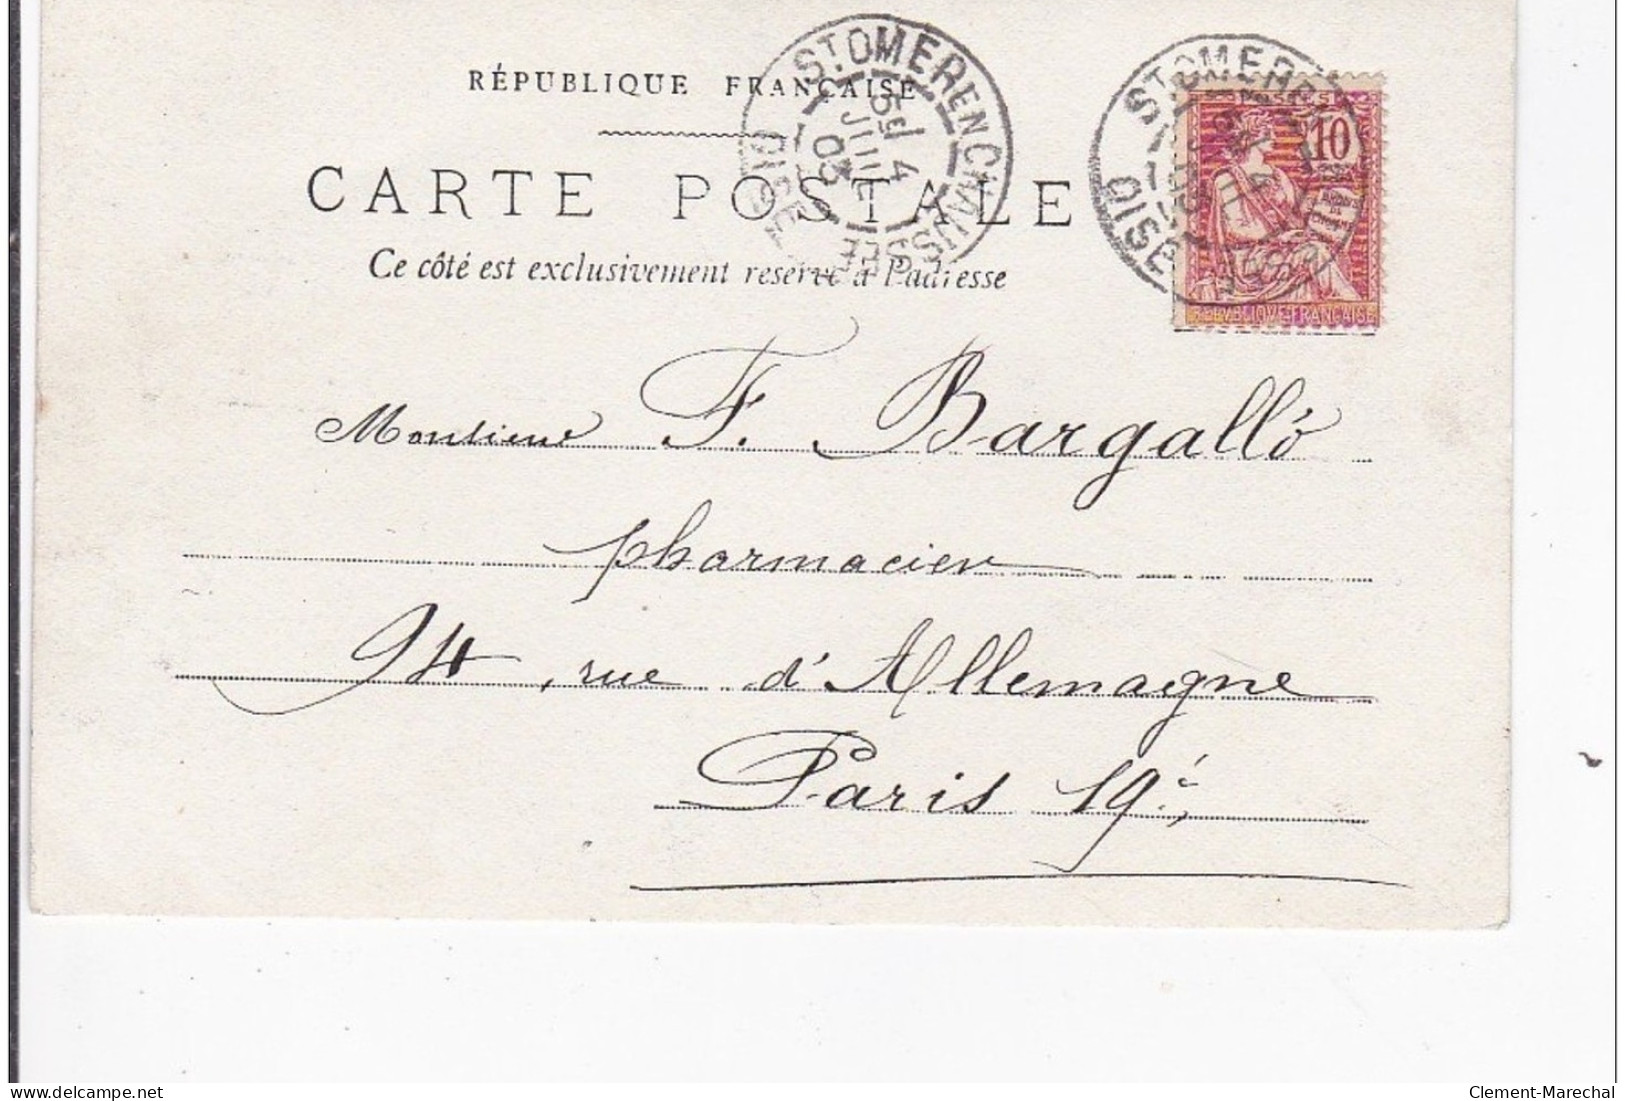 RÉPUBLIQUE FRANÇAISE
ST OMER EN CHAUSSEE
5E 4
JUIL
03
OISE
10
POSTES
REPUBLIQUE FRANÇAISE
ST OMER
OISE
CARTE POSTALE
Ce côté est exclusivement réservé à l'adresse
Monsieur F. Bargalló
pharmacien
94, rue d'Allemagne
Paris 19e,
delcampe.net
Clement-Marechal